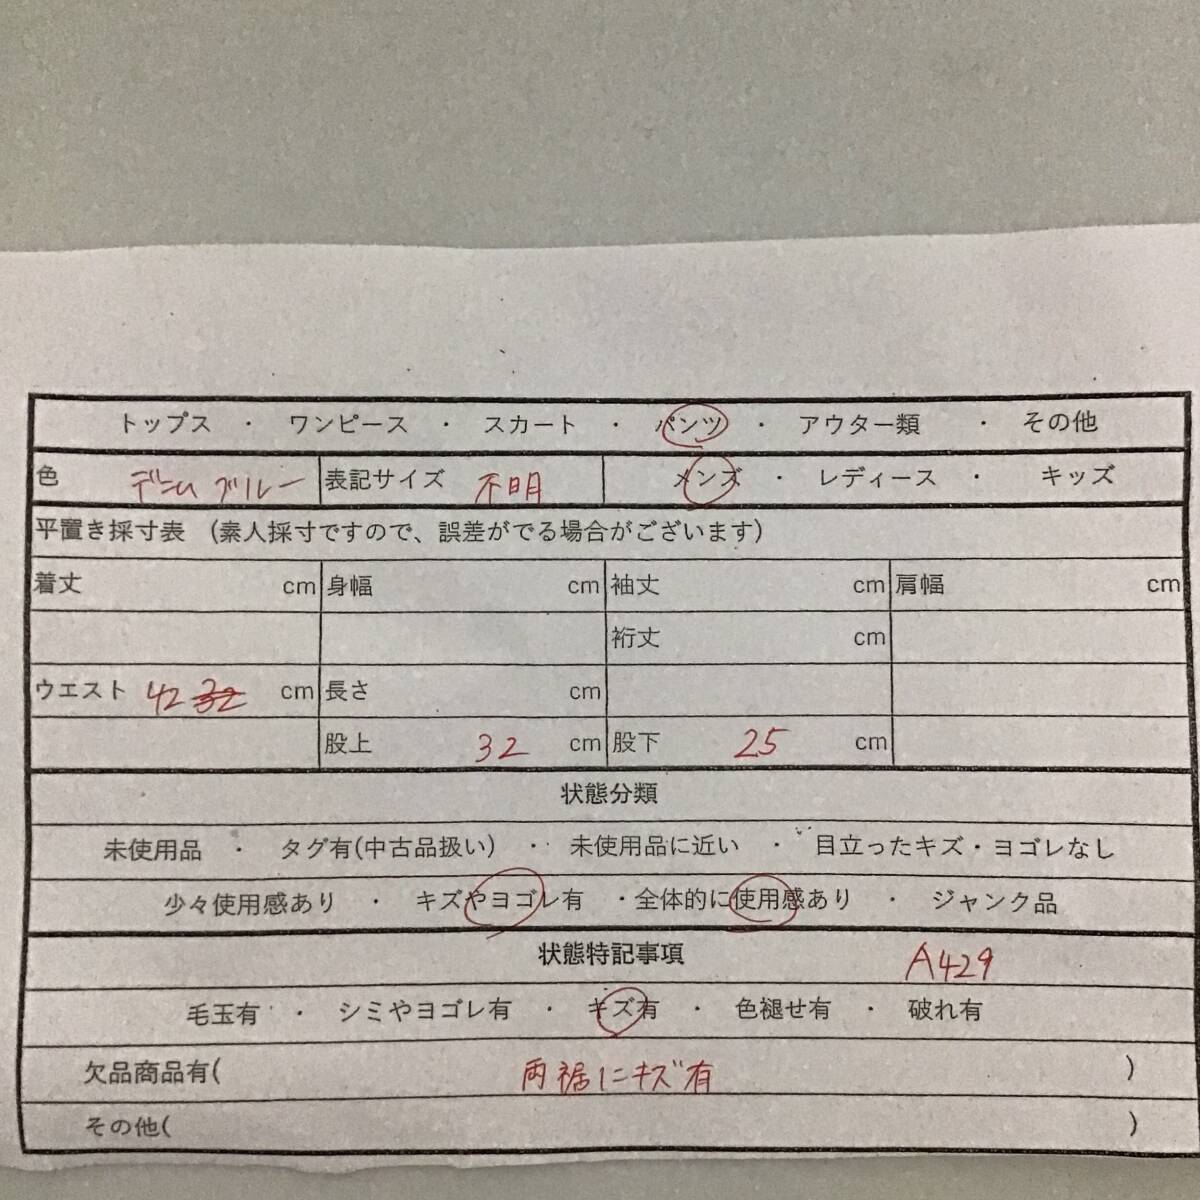 トップス ・ ワンピース ・ スカート ・ パンツ ・ アウター類 ・ その他
色 デニムブルー 表記サイズ 不明 メンズ ・ レディース ・ キッズ
平置き採寸表 (素人採寸ですので、誤差がでる場合がございます)
着丈 cm 身幅 cm 袖丈 cm 肩幅 cm
裄丈 cm
ウエスト 42 32 cm 長さ cm
股上 32 cm 股下 25 cm
状態分類
未使用品 ・ タグ有(中古品扱い) ・ 未使用品に近い ・ 目立ったキズ・ヨゴレなし
少々使用感あり ・ キズやヨゴレ有 ・全体的に使用感あり ・ ジャンク品
状態特記事項 A429
毛玉有 ・ シミやヨゴレ有 ・ キズ有 ・ 色褪せ有 ・ 破れ有
欠品商品有( 両裾にキズ有 )
その他( )